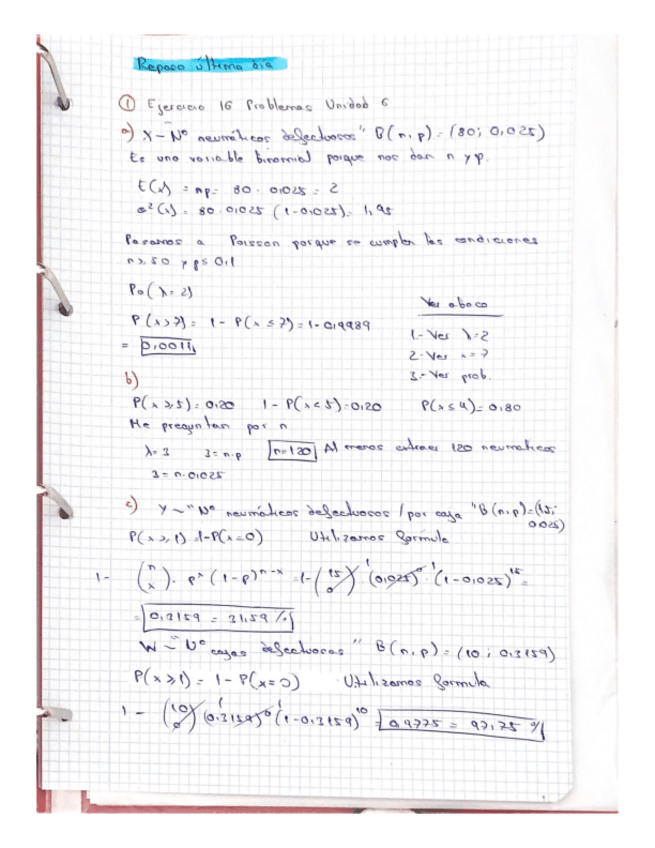 Repaso último día
① Ejercicio 16 Problemas Unidad 6
a) X ~ Nº neumáticos defectuosos" B(n,p)=(80; 0,025)
Es una variable binomial porque nos dan n y p.
E(x) = np = 80 · 0,025 = 2
σ²(x) = 80 · 0,025 (1-0,025) = 1,95
Pasamos a Poisson porque se cumplen las condiciones
n ≥ 50 y p ≤ 0,1
Po(λ=2)
P(x>7) = 1 - P(x ≤ 7) = 1 - 0,9989
= 0,0011
Ver abaco
1- Ver λ=2
2- Ver x=7
3- Ver prob.
b)
P(x ≥ 5) = 0,20 1 - P(x < 5) = 0,20 P(x ≤ 4) = 0,80
Me preguntan por n
λ = 3 3 = n·p n = 120 Al menos extraer 120 neumaticos
3 = n·0,025
c) Y ~ "Nº neumáticos defectuosos / por caja "B(n,p)=(15; 0,025)
P(x ≥ 1) = 1-P(x=0) Utilizamos formula
1 - (n x) · pˣ (1-p)ⁿ⁻ˣ = 1 - (15 0)¹ (0,025)⁰ ¹ · (1-0,025)¹⁵ =
= 0,3159 = 31,59 %
W ~ "Nº cajas defectuosas" B(n,p) = (10; 0,3159)
P(x ≥ 1) = 1 - P(x=0) Utilizamos formula
1 - (10 0)¹ (0,3159)⁰ ¹ (1-0,3159)¹⁰ = 0,9775 = 97,75 %